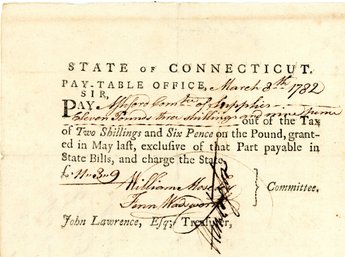 STATE OF CONNECTICUT.
PAY-TABLE OFFICE, March 8th 1782
SIR,
PAY Ashford Comtee of Supplies
Eleven Pounds three shillings and nine pence
out of the Tax
of Two Shillings and Six Pence on the Pound, grant-
ed in May last, exclusive of that Part payable in
State Bills, and charge the State
£11 „ 3 „ 9
William Moseley
Fenn Wadsworth
Committee.
John Lawrence, Esq; Treasurer,